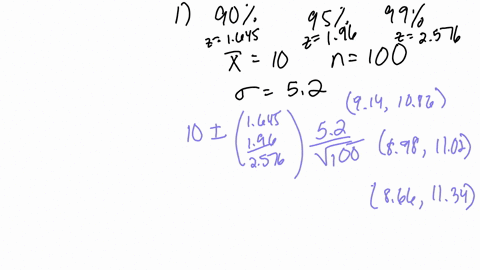 1) 90% 95% 99%
z=1.645 z=1.96 z=2.576
x̄ = 10 n=100
σ = 5.2
(9.14, 10.86)
10 ± (1.645 1.96 2.576) 5.2/√100 (8.98, 11.02)
(8.66, 11.34)